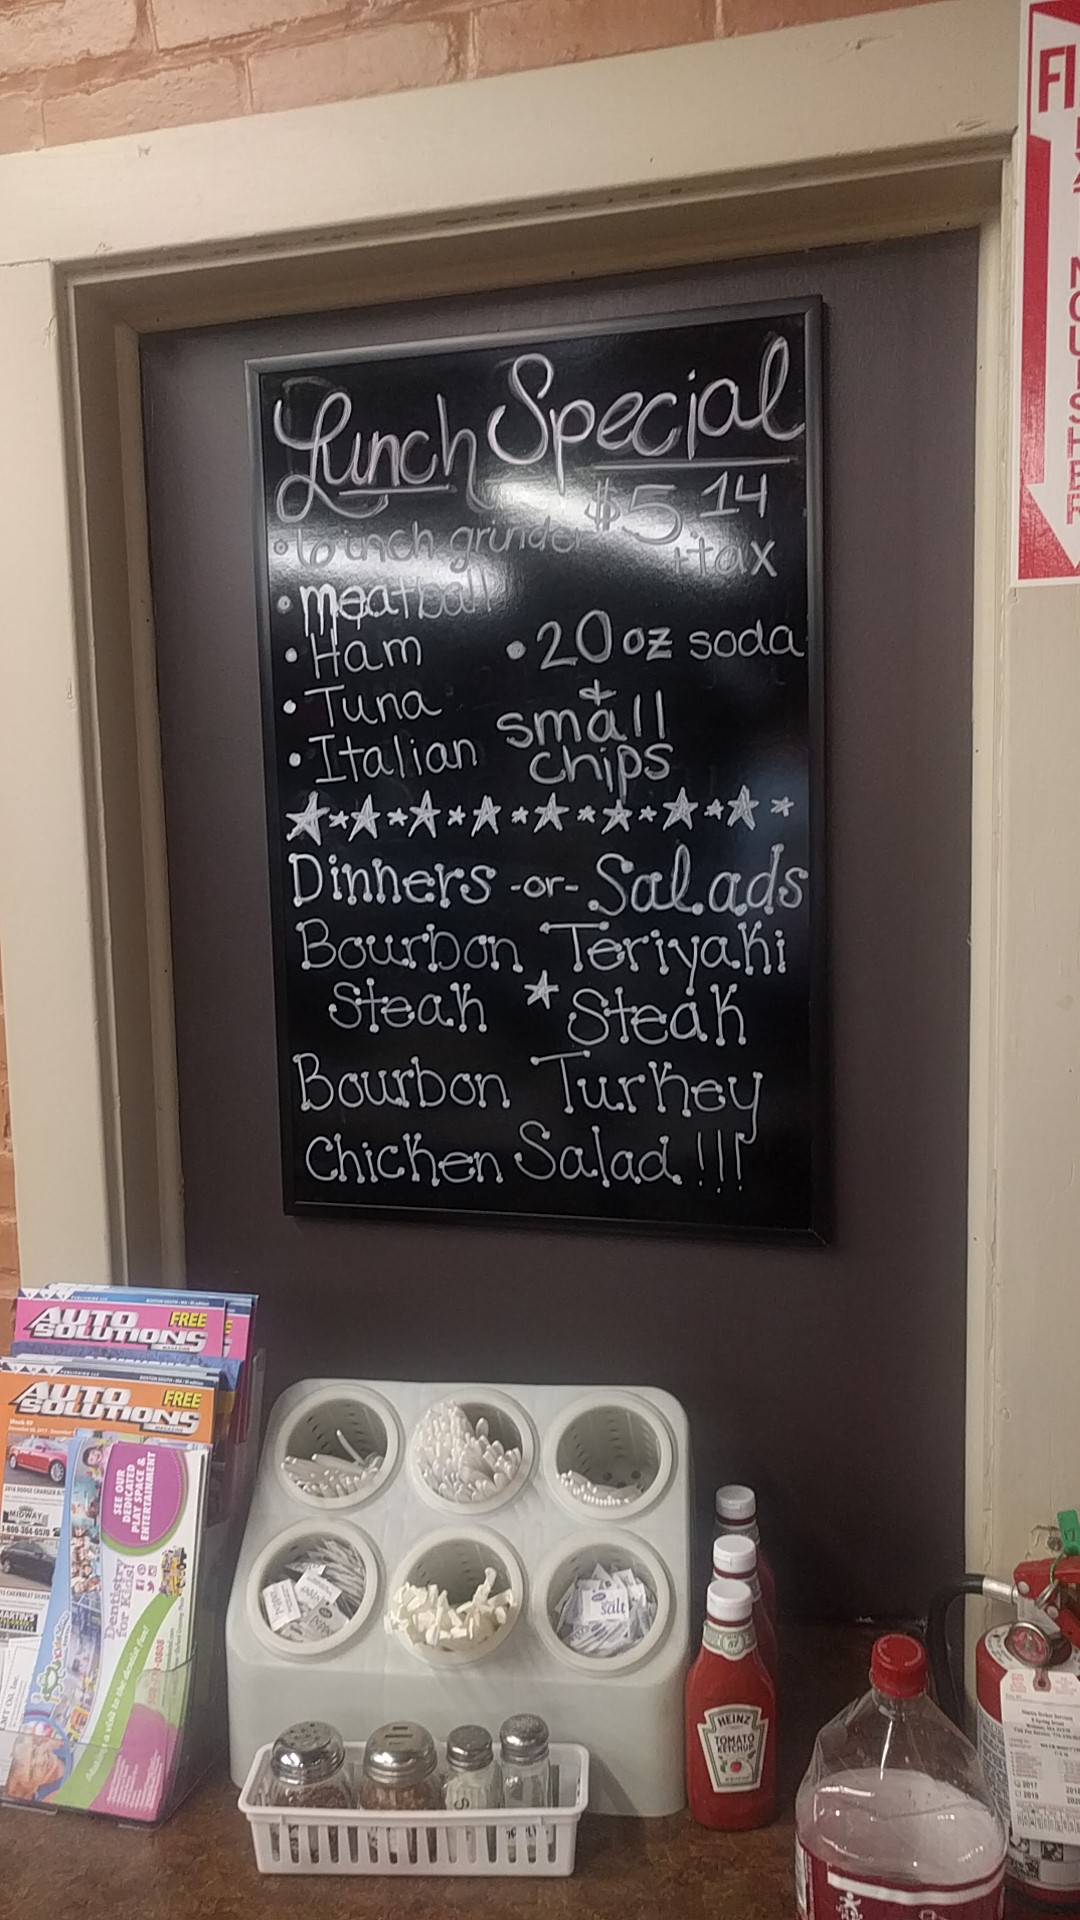 Lunch Special
$5 14
+tax
• 6 inch grinder
• meatball
• Ham
• Tuna
• Italian
• 20 oz soda
+
small
chips
Dinners -or- Salads
Bourbon Steak
Teriyaki Steak
Bourbon Chicken
Turkey Salad!!!
AUTO SOLUTIONS
MAGAZINE
FREE
AUTO SOLUTIONS
MAGAZINE
FREE
MIDWAY
1-800-364-6070
SEE OUR
DEDICATED
PLAY SPACE &
ENTERTAINMENT
Dentistry
for Kids!
salt
HEINZ
TOMATO
KETCHUP
57
2017
2018
2019